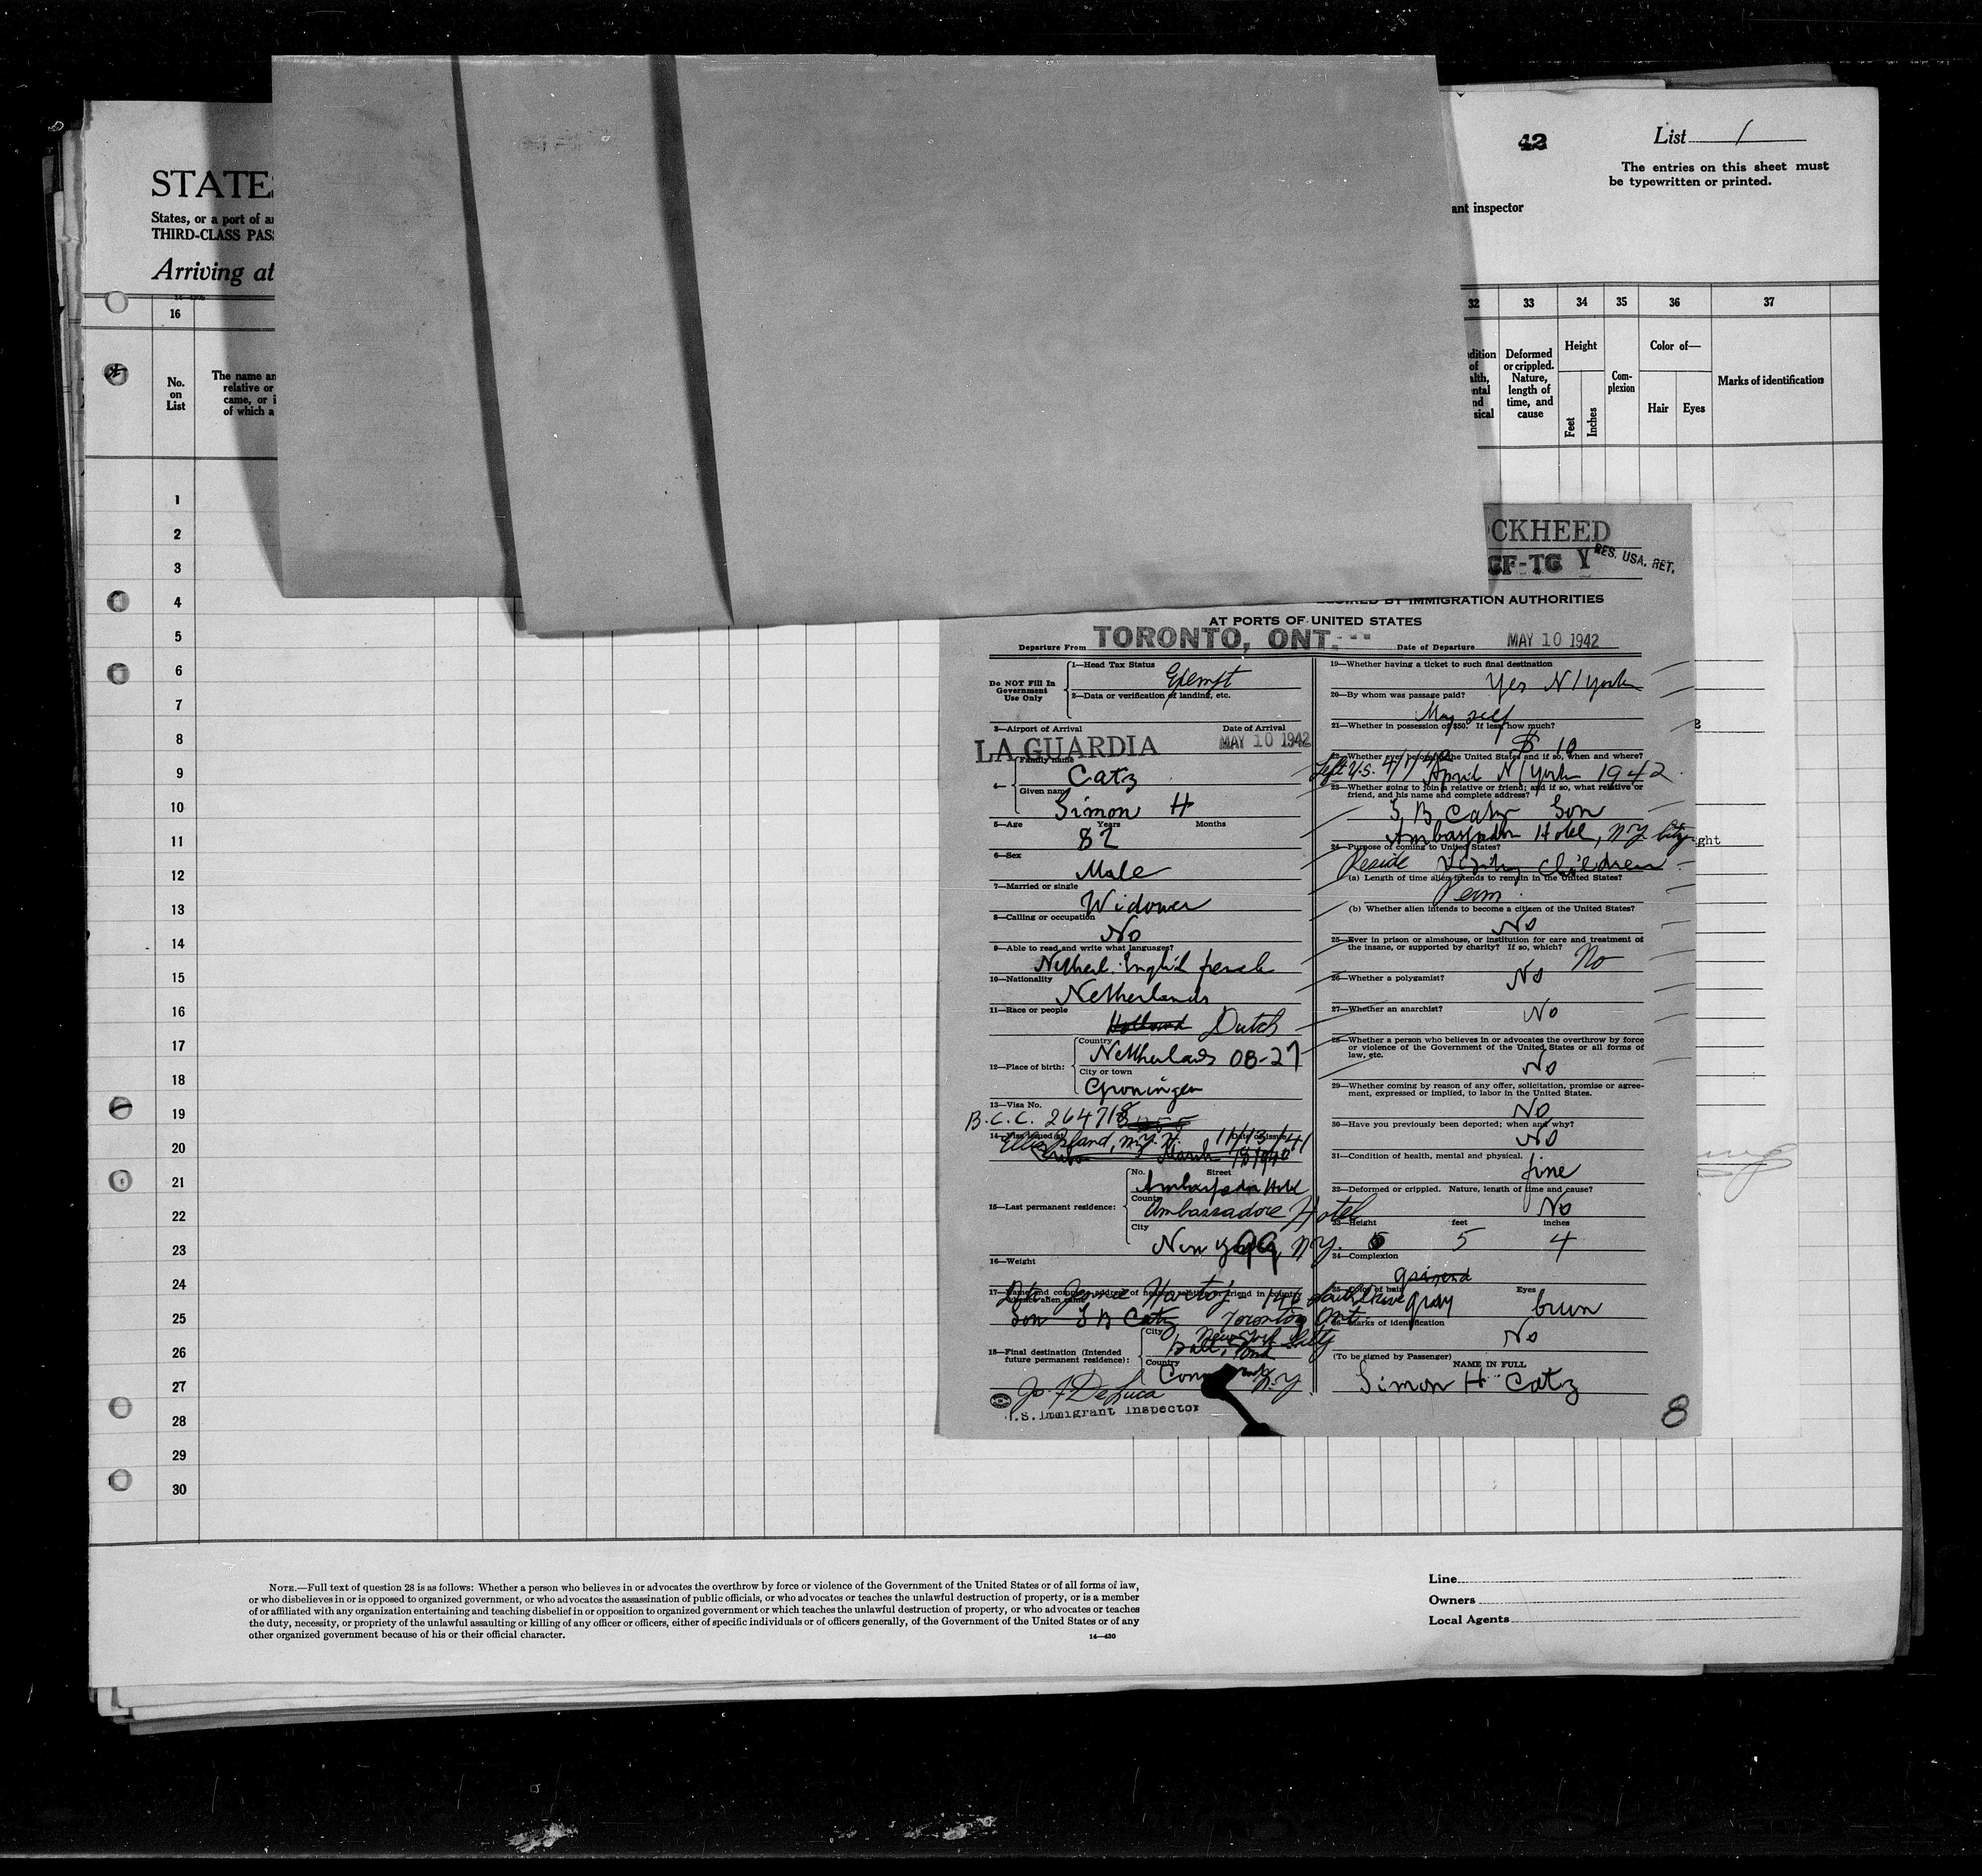 42
List 1
The entries on this sheet must
be typewritten or printed.
ant inspector
STATE
States, or a port of a
THIRD-CLASS PAS
Arriving at
16
32 33 34 35 36 37
No.
on
List
The name an
relative or
came, or i
of which a
dition
of
alth,
ntal
nd
sical
Deformed
or crippled.
Nature,
length of
time, and
cause
Height
Feet
Inches
Com-
plexion
Color of—
Hair Eyes
Marks of identification
1
2
3
4
5
6
7
8
9
10
11
12
13
14
15
16
17
18
19
20
21
22
23
24
25
26
27
28
29
30
OCKHEED
CF-TG Y
RES. USA. RET.
IMMIGRATION AUTHORITIES
AT PORTS OF UNITED STATES
Departure From TORONTO, ONT. Date of Departure MAY 10 1942
Do NOT Fill In
Government
Use Only
1—Head Tax Status
Exempt
2—Data or verification of landing, etc.
3—Airport of Arrival Date of Arrival
LA GUARDIA MAY 10 1942
4— Family name
Catz
Given name
Simon H
5—Age Years Months
82
6—Sex
Male
7—Married or single
Widower
8—Calling or occupation
No
9—Able to read and write what languages?
Netherl. English french
10—Nationality
Netherlands
11—Race or people
Holland Dutch
12—Place of birth:
Country
Netherlands 08-27
City or town
Groningen
13—Visa No.
B.C.C. 264718
14—Visa issued at Date of issue
Ellis Island, N.Y. 11/13/41
March
15—Last permanent residence:
No. Street
Ambassador Hotel
Country
Ambassadore Hotel
City
New York, N.Y.
16—Weight
17—Name and complete address of nearest relative or friend in country
whence alien came
Son S B Catz Toronto, Ont.
18—Final destination (Intended
future permanent residence):
City
New York City
Country
Conn N.Y
Jo. F DeLuca
U.S. Immigrant Inspector
19—Whether having a ticket to such final destination
Yes N/York
20—By whom was passage paid?
My self
21—Whether in possession of $50. If less, how much?
$ 10
22—Whether ever before in the United States and if so, when and where?
Left U.S. April N/York 1942
23—Whether going to join a relative or friend; and if so, what relative or
friend, and his name and complete address?
S B Catz Son
Ambassador Hotel, N.Y. City
24—Purpose of coming to United States?
Reside Visiting children
(a) Length of time alien intends to remain in the United States?
Perm
(b) Whether alien intends to become a citizen of the United States?
No
25—Ever in prison or almshouse, or institution for care and treatment of
the insane, or supported by charity? If so, which?
No
26—Whether a polygamist?
No
27—Whether an anarchist?
No
28—Whether a person who believes in or advocates the overthrow by force
or violence of the Government of the United States or all forms of
law, etc.
No
29—Whether coming by reason of any offer, solicitation, promise or agree-
ment, expressed or implied, to labor in the United States.
No
30—Have you previously been deported; when and why?
No
31—Condition of health, mental and physical.
fine
32—Deformed or crippled. Nature, length of time and cause?
No
33—Height feet inches
5 4
34—Complexion
35—Color of hair Eyes
gray brun
36—Marks of identification
No
(To be signed by Passenger)
NAME IN FULL
Simon H Catz
8
ght
NOTE.—Full text of question 28 is as follows: Whether a person who believes in or advocates the overthrow by force or violence of the Government of the United States or of all forms of law,
or who disbelieves in or is opposed to organized government, or who advocates the assassination of public officials, or who advocates or teaches the unlawful destruction of property, or is a member
of or affiliated with any organization entertaining and teaching disbelief in or opposition to organized government or which teaches the unlawful destruction of property, or who advocates or teaches
the duty, necessity, or propriety of the unlawful assaulting or killing of any officer or officers, either of specific individuals or of officers generally, of the Government of the United States or of any
other organized government because of his or their official character.
14—430
Line
Owners
Local Agents